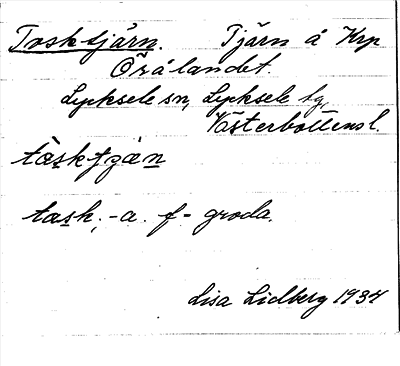 Tosktjärn. Tjärn å Krp
Örålandet.
Lycksele sn, Lycksele tg,
Västerbottens l.
tàsktjan
task, -a. f = groda.
Lisa Lidberg 1934